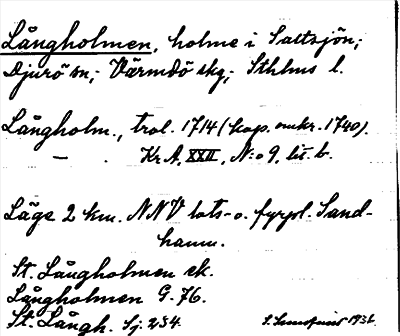 Långholmen, holme i Saltsjön;
Djurö sn; Värmdö skg; Sthlms l.
Långholm., trol. 1714 (kop. omkr. 1740).
— . Kr A, XXII, N:o 9, lit. b.
Läge 2 km. NNV lots- o. fyrpl. Sand-
hamn.
St. Långholmen ek.
Långholmen G. 76.
St. Långh. Sj. 254.
1931.